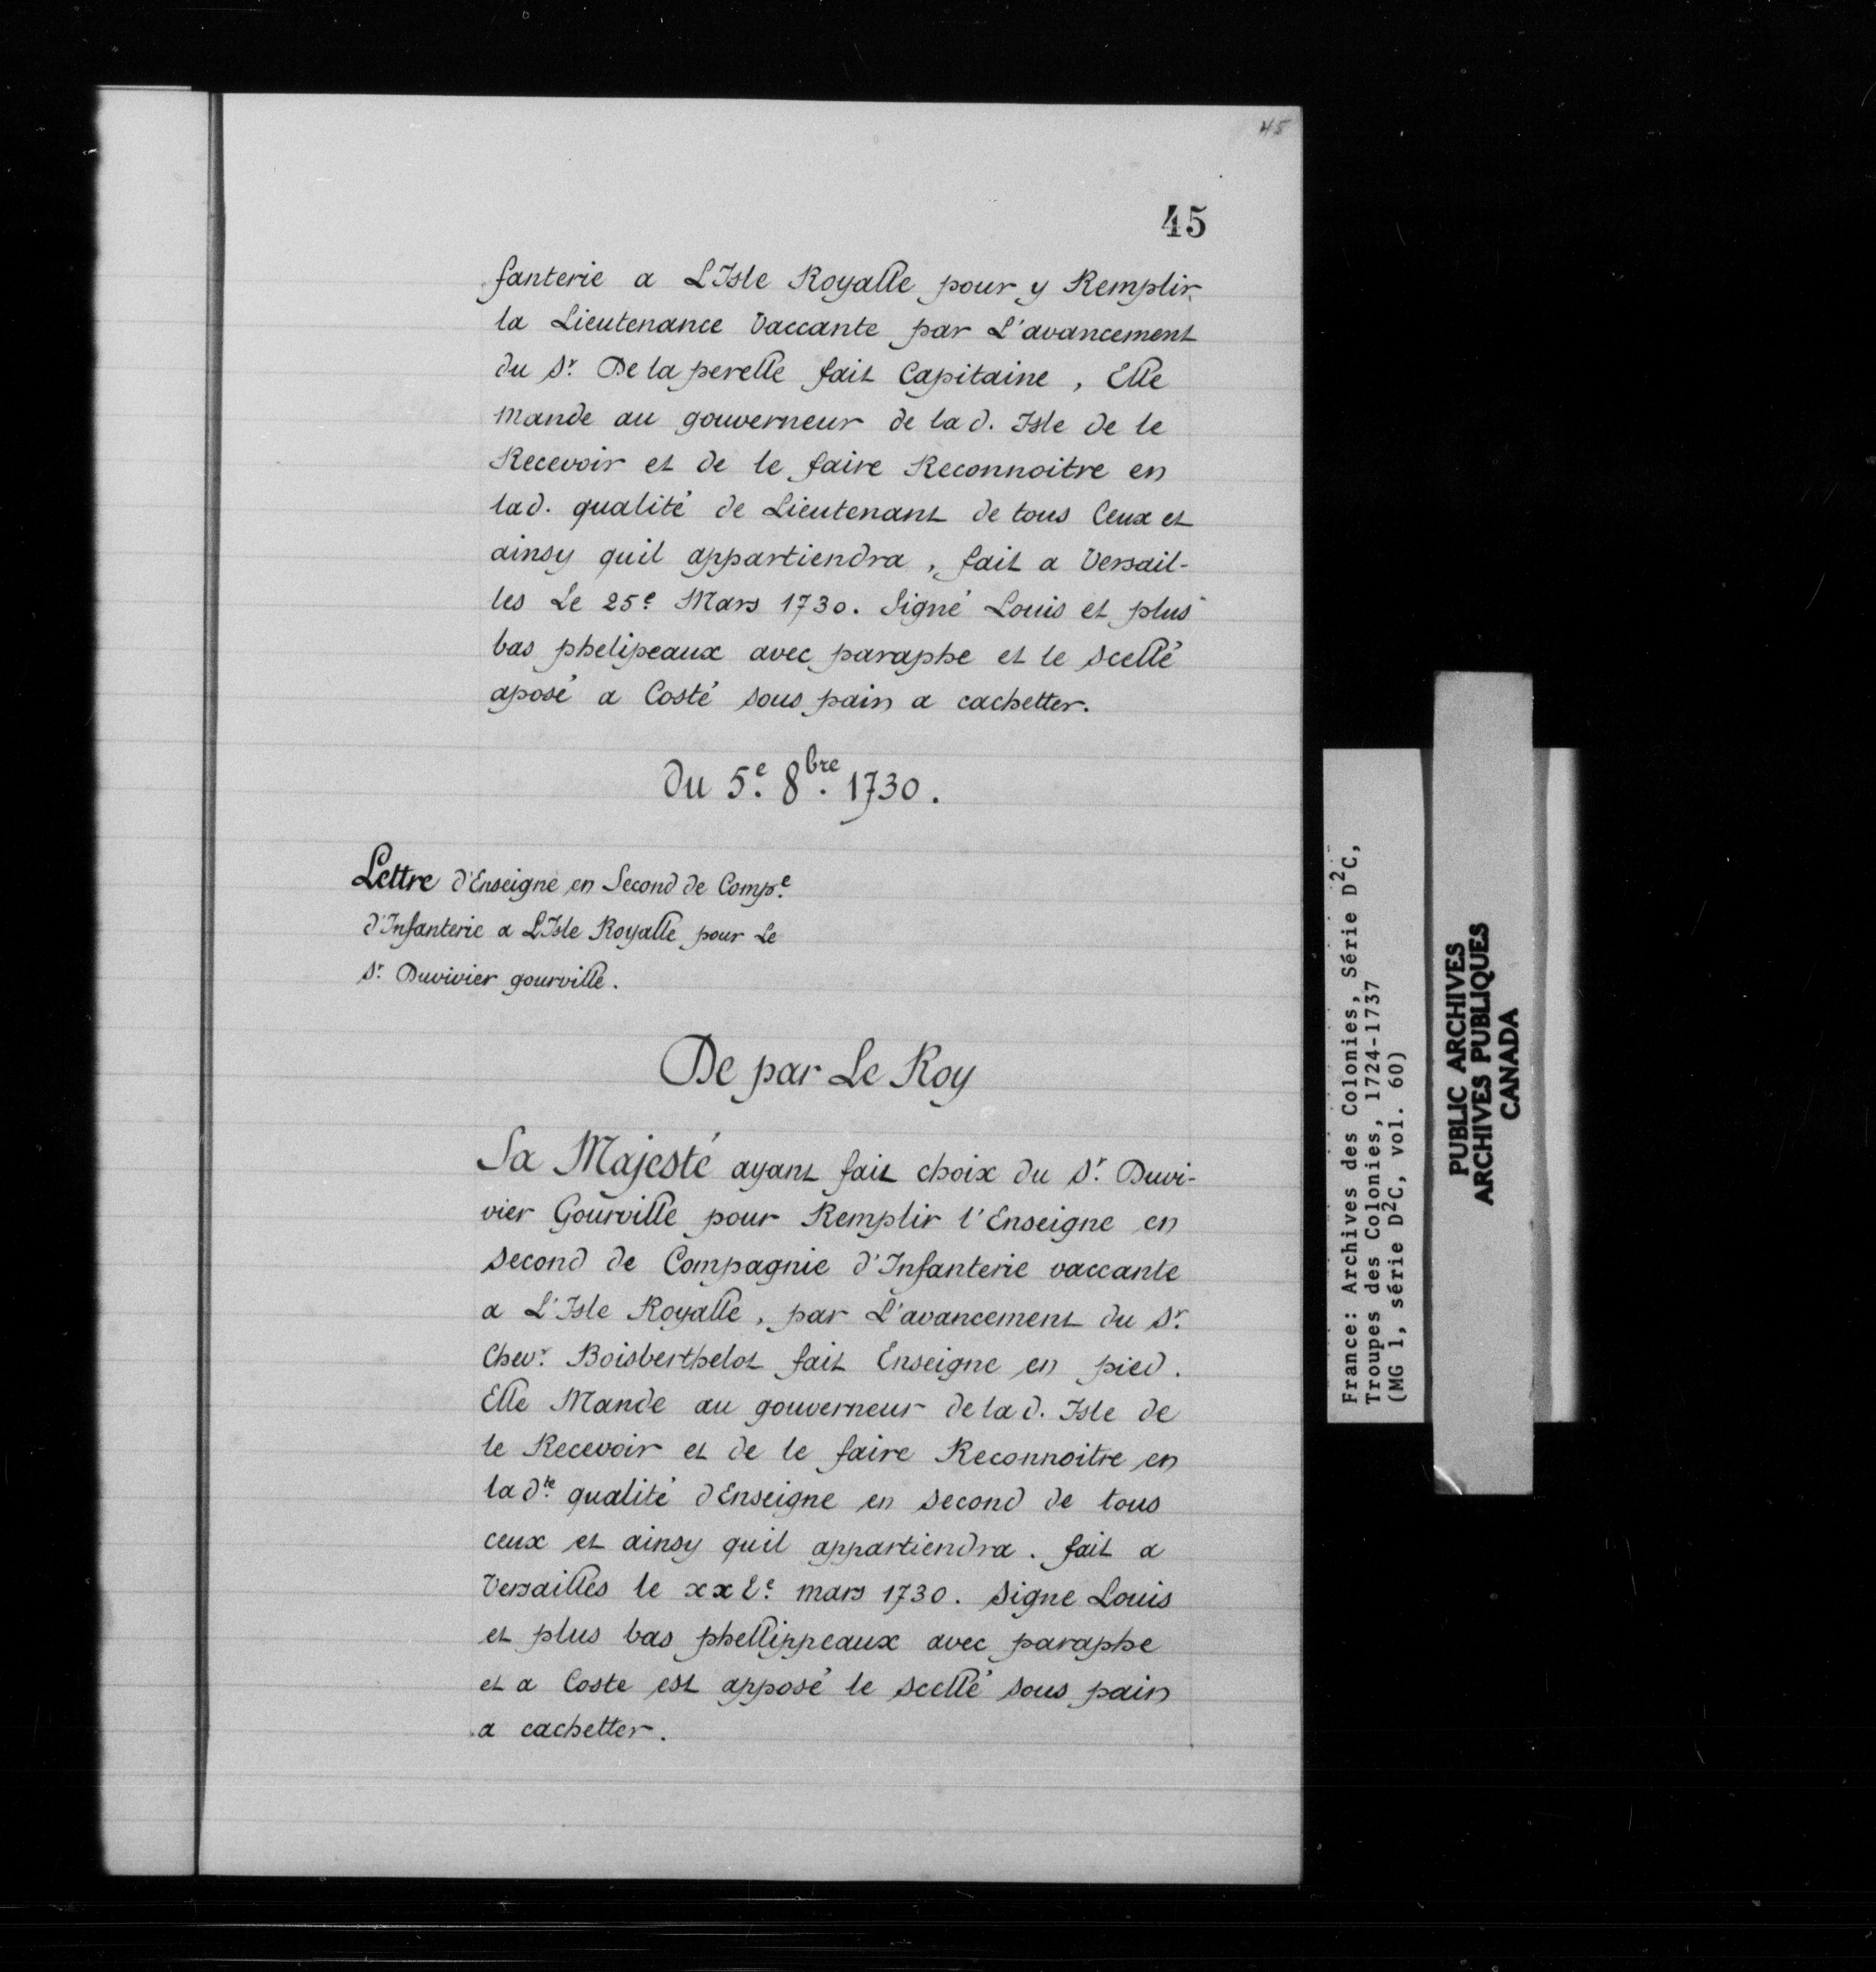 45
45
fanterie a L'Isle Royalle pour y Remplir
la Lieutenance Vaccante par L'avancement
du Sr. De la perelle fait Capitaine, Elle
mande au gouverneur de lad. Isle de le
Recevoir et de le faire Reconnoitre en
lad. qualité de Lieutenant de tous Ceux et
ainsy quil appartiendra, fait a Versail-
les Le 25e Mars 1730. Signé Louis et plus
bas phelipeaux avec paraphe et le scellé
aposé a Costé sous pain a cachetter.
Du 5e. 8bre. 1730.
Lettre d'Enseigne en Second de Compe.
d'Infanterie a L'Isle Royalle pour Le
Sr. Duvivier gourville.
De par Le Roy
Sa Majesté ayant fait choix du Sr. Duvi-
vier Gourville pour Remplir l'Enseigne en
second de Compagnie d'Infanterie vaccante
a L'Isle Royalle, par L'avancement du Sr.
Chevr. Boisberthelot fait Enseigne en pied.
Elle Mande au gouverneur de lad. Isle de
le Recevoir et de le faire Reconnoitre en
la dte. qualité dEnseigne en second de tous
ceux et ainsy quil appartiendra. fait a
Versailles le mars 1730. signe Louis
et plus bas phellippeaux avec paraphe
et a Coste est apposé le scellé sous pain
a cachetter.
France: Archives des Colonies, Série D2C,
Troupes des Colonies, 1724-1737
(MG 1, série D2C, vol. 60)
PUBLIC ARCHIVES
ARCHIVES PUBLIQUES
CANADA